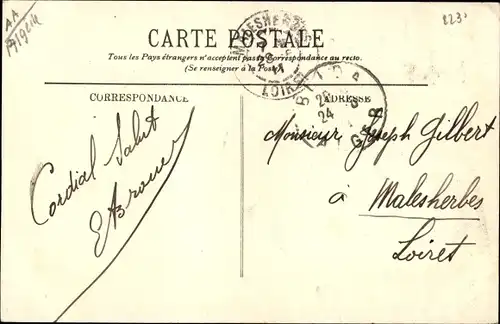 AA
223
CARTE POSTALE
Tous les Pays étrangers n'acceptent pas la Correspondance au recto.
(Se renseigner à la Poste)
MALESHERBES
LOIRET
BLIDA
26
24
ALGER
CORRESPONDANCE
ADRESSE
Cordial Salut
Monsieur Joseph Gilbert
à
Malesherbes
Loiret